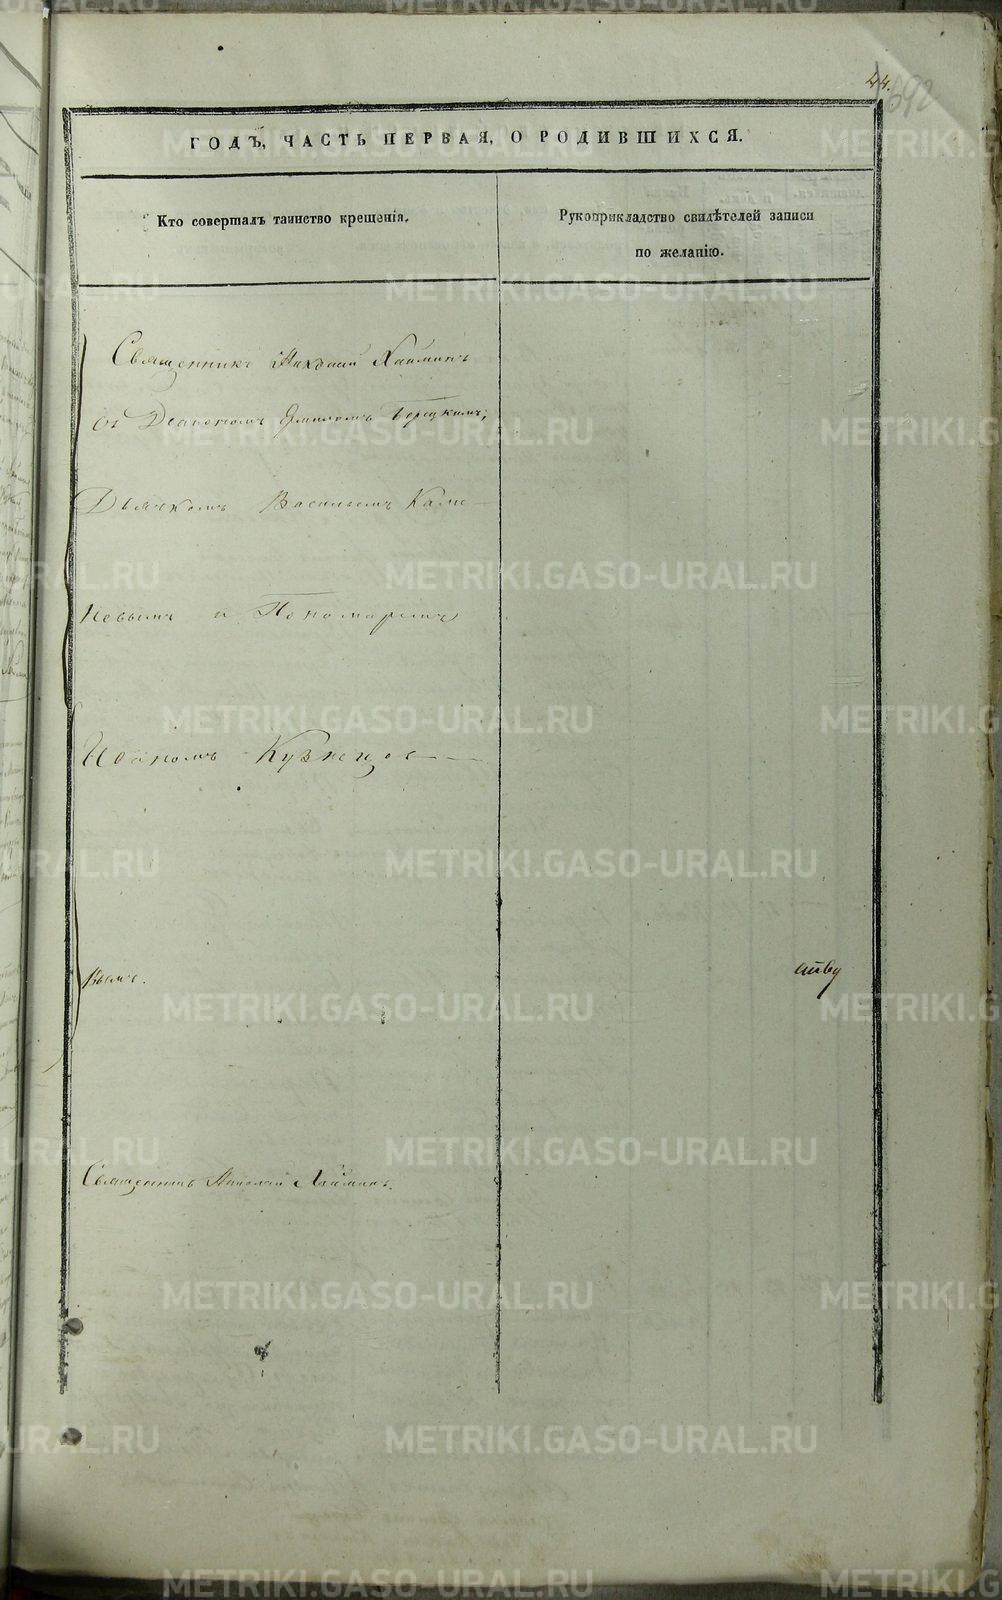 44.
392
ГОДЪ, ЧАСТЬ ПЕРВАЯ, О РОДИВШИХСЯ.
Кто совершалъ таинство крещенія.
Рукоприкладство свидѣтелей записи
по желанію.
Священникъ Николай
съ Діакономъ
Дьячкомъ Васильемъ Каме-
невымъ и Пономаремъ
Иваномъ Кузнецов-
вымъ.
Священникъ Николай
METRIKI.GASO-URAL.RU